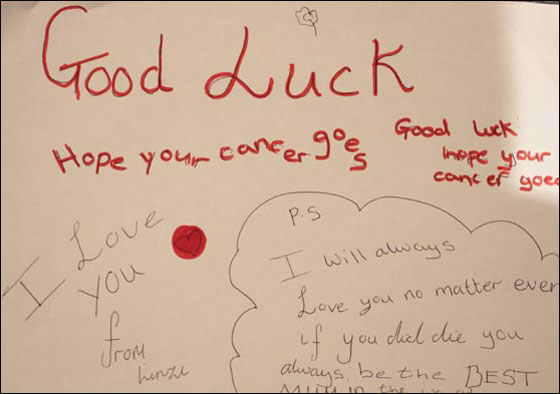 Good Luck
Hope your cancer goes
Good luck
hope your
cancer goes
I Love
you
from
P.S
I will always
Love you no matter even
if you did die you
always be the BEST
MUM in the